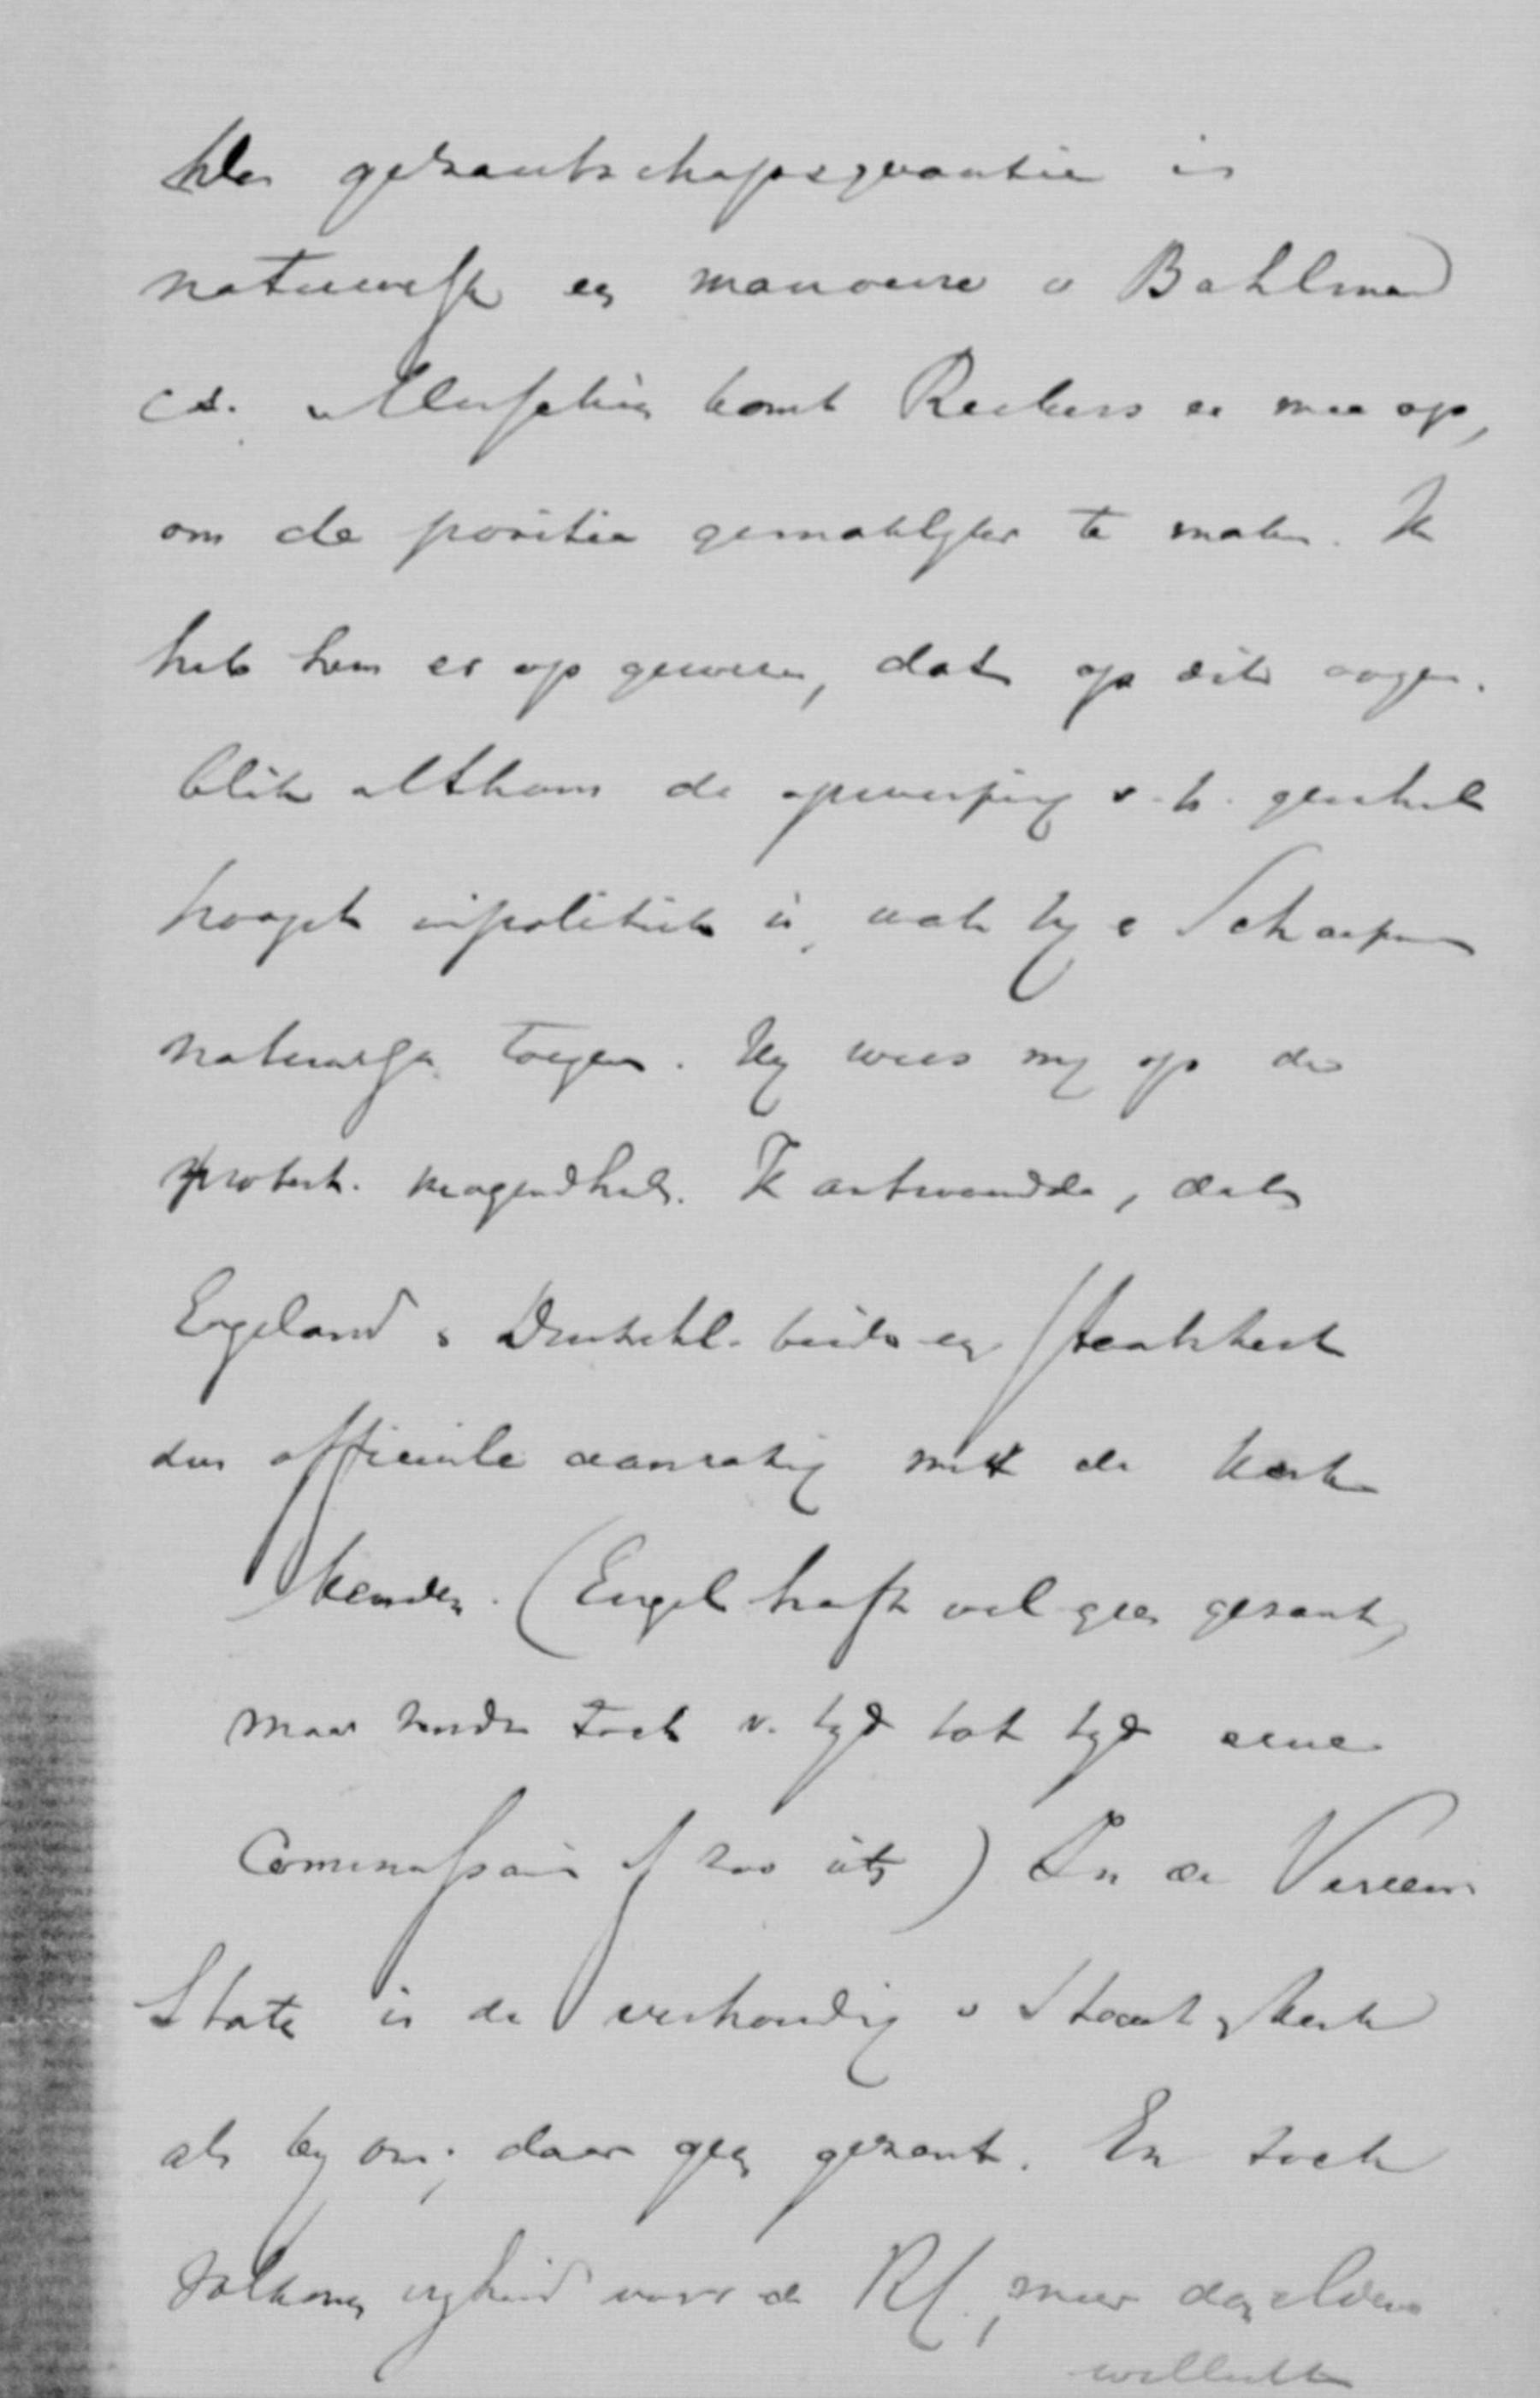 De gezantschapsquaestie is
natuurlijk een manoeuvre v Bahlman
cs. Allerhtien komt Reekers er mee op,
om de positie gemakklijker te maken. Ik
heb hem er op gewezen, dat op dit oogen-
blik althans de opwerping v. h. geschil
hoogst impolitiek is, wat hij e Schaepman
natuurlijk toegeven. Hij wees mij op de
protest. mogendhed. Ik antwoordde, dat
Engeland & Duitschl. beide een staatskerk
dus officieele aanraking met de kerk
kenden. (Engel heeft wel geen gezant,
maar zendt toch v. tijd tot tijd eene
Commissaris of zoo iets) In de Vereen.
Staten is de verhouding v Staat & Kerk
als bij ons; daar geen gezant. En toch
volkomen vrijheid voor de RC., meer dan elders
wellicht